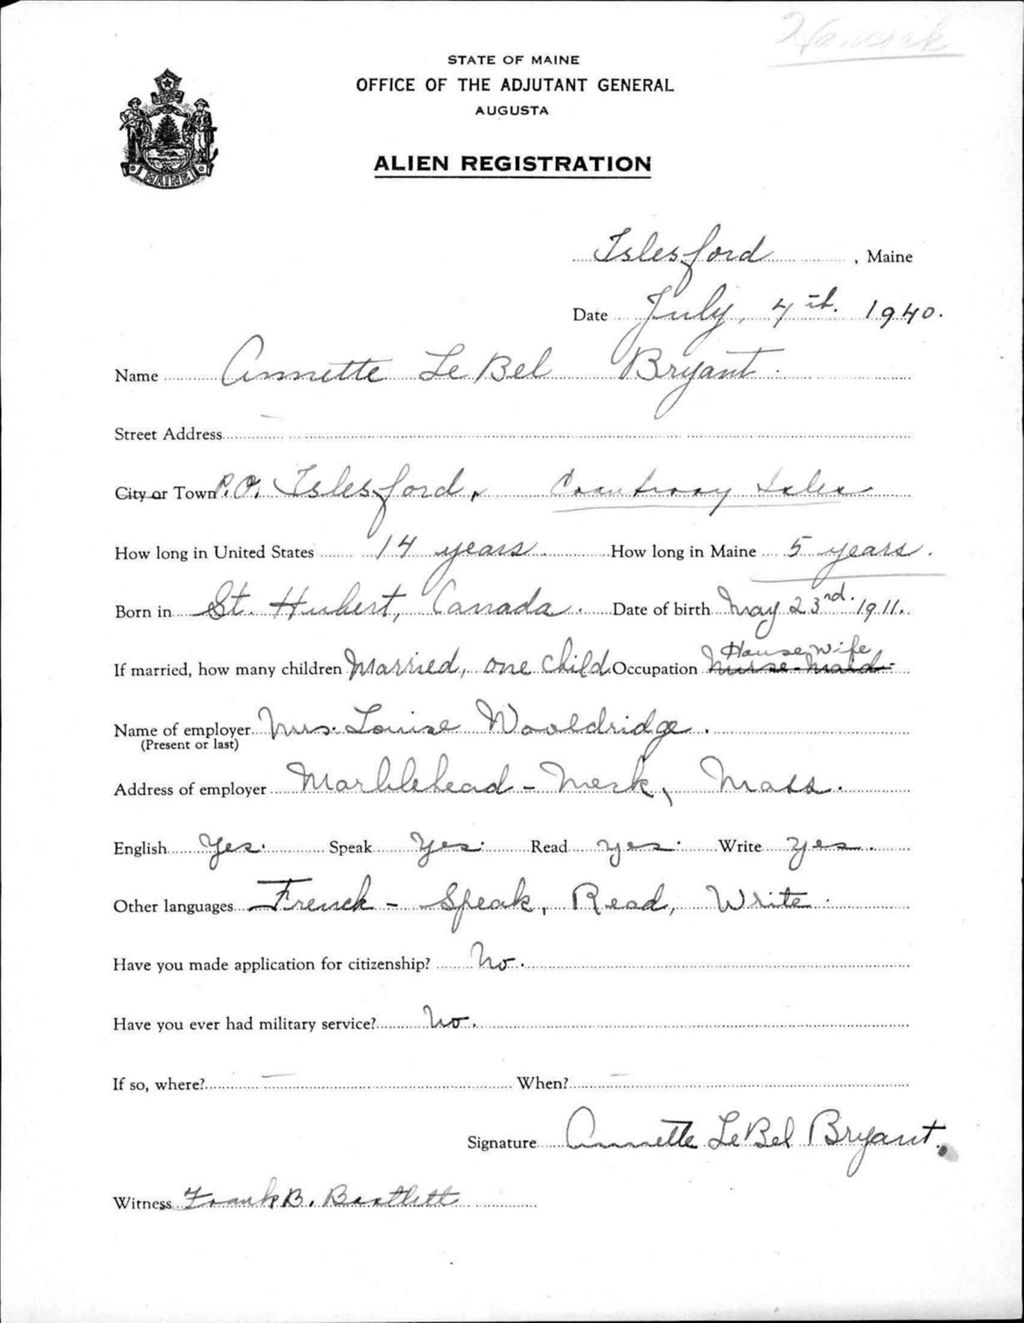 Hancock
STATE OF MAINE
OFFICE OF THE ADJUTANT GENERAL
AUGUSTA
ALIEN REGISTRATION
MAINE
Islesford, Maine
Date July, 4th. 1940.
Name Annette Le Bel Bryant.
Street Address —
City or Town P.O. Islesford, Cranberry Isles
How long in United States 14 years. How long in Maine 5 years.
Born in St. Hubert, Canada. Date of birth May 23rd. 1911.
House wife
If married, how many children Married, one child Occupation Nurse-Maid.
Name of employer Mrs. Louise Wooldridge.
(Present or last)
Address of employer Marblehead-Neck, Mass.
English Yes. Speak Yes. Read yes. Write yes.
Other languages French - Speak, Read, Write.
Have you made application for citizenship? No.
Have you ever had military service? No.
If so, where? — When? —
Signature Annette Le Bel Bryant.
Witness Frank B. Bartlett